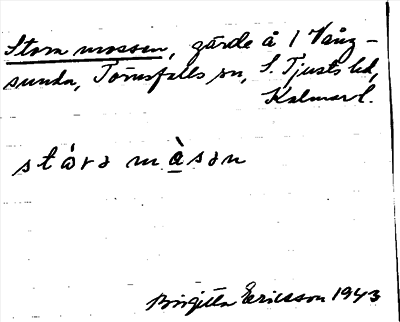 Stora mossen, gärde å 1 Vång-
sunda, Törnsfalls sn, S. Tjusts hd,
Kalmar l.
stóra mò̱sən
Birgitta Ericsson 1943